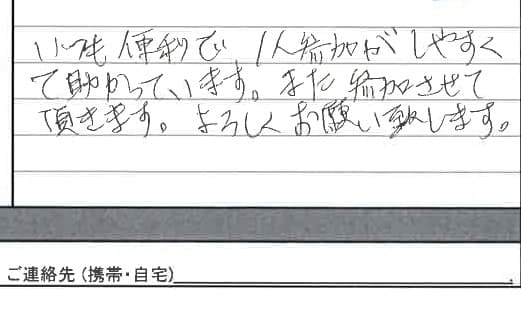 いつも便利で 1人参加がしやすく
て助かっています。また参加させて
頂きます。よろしくお願い致します。
ご連絡先(携帯・自宅)